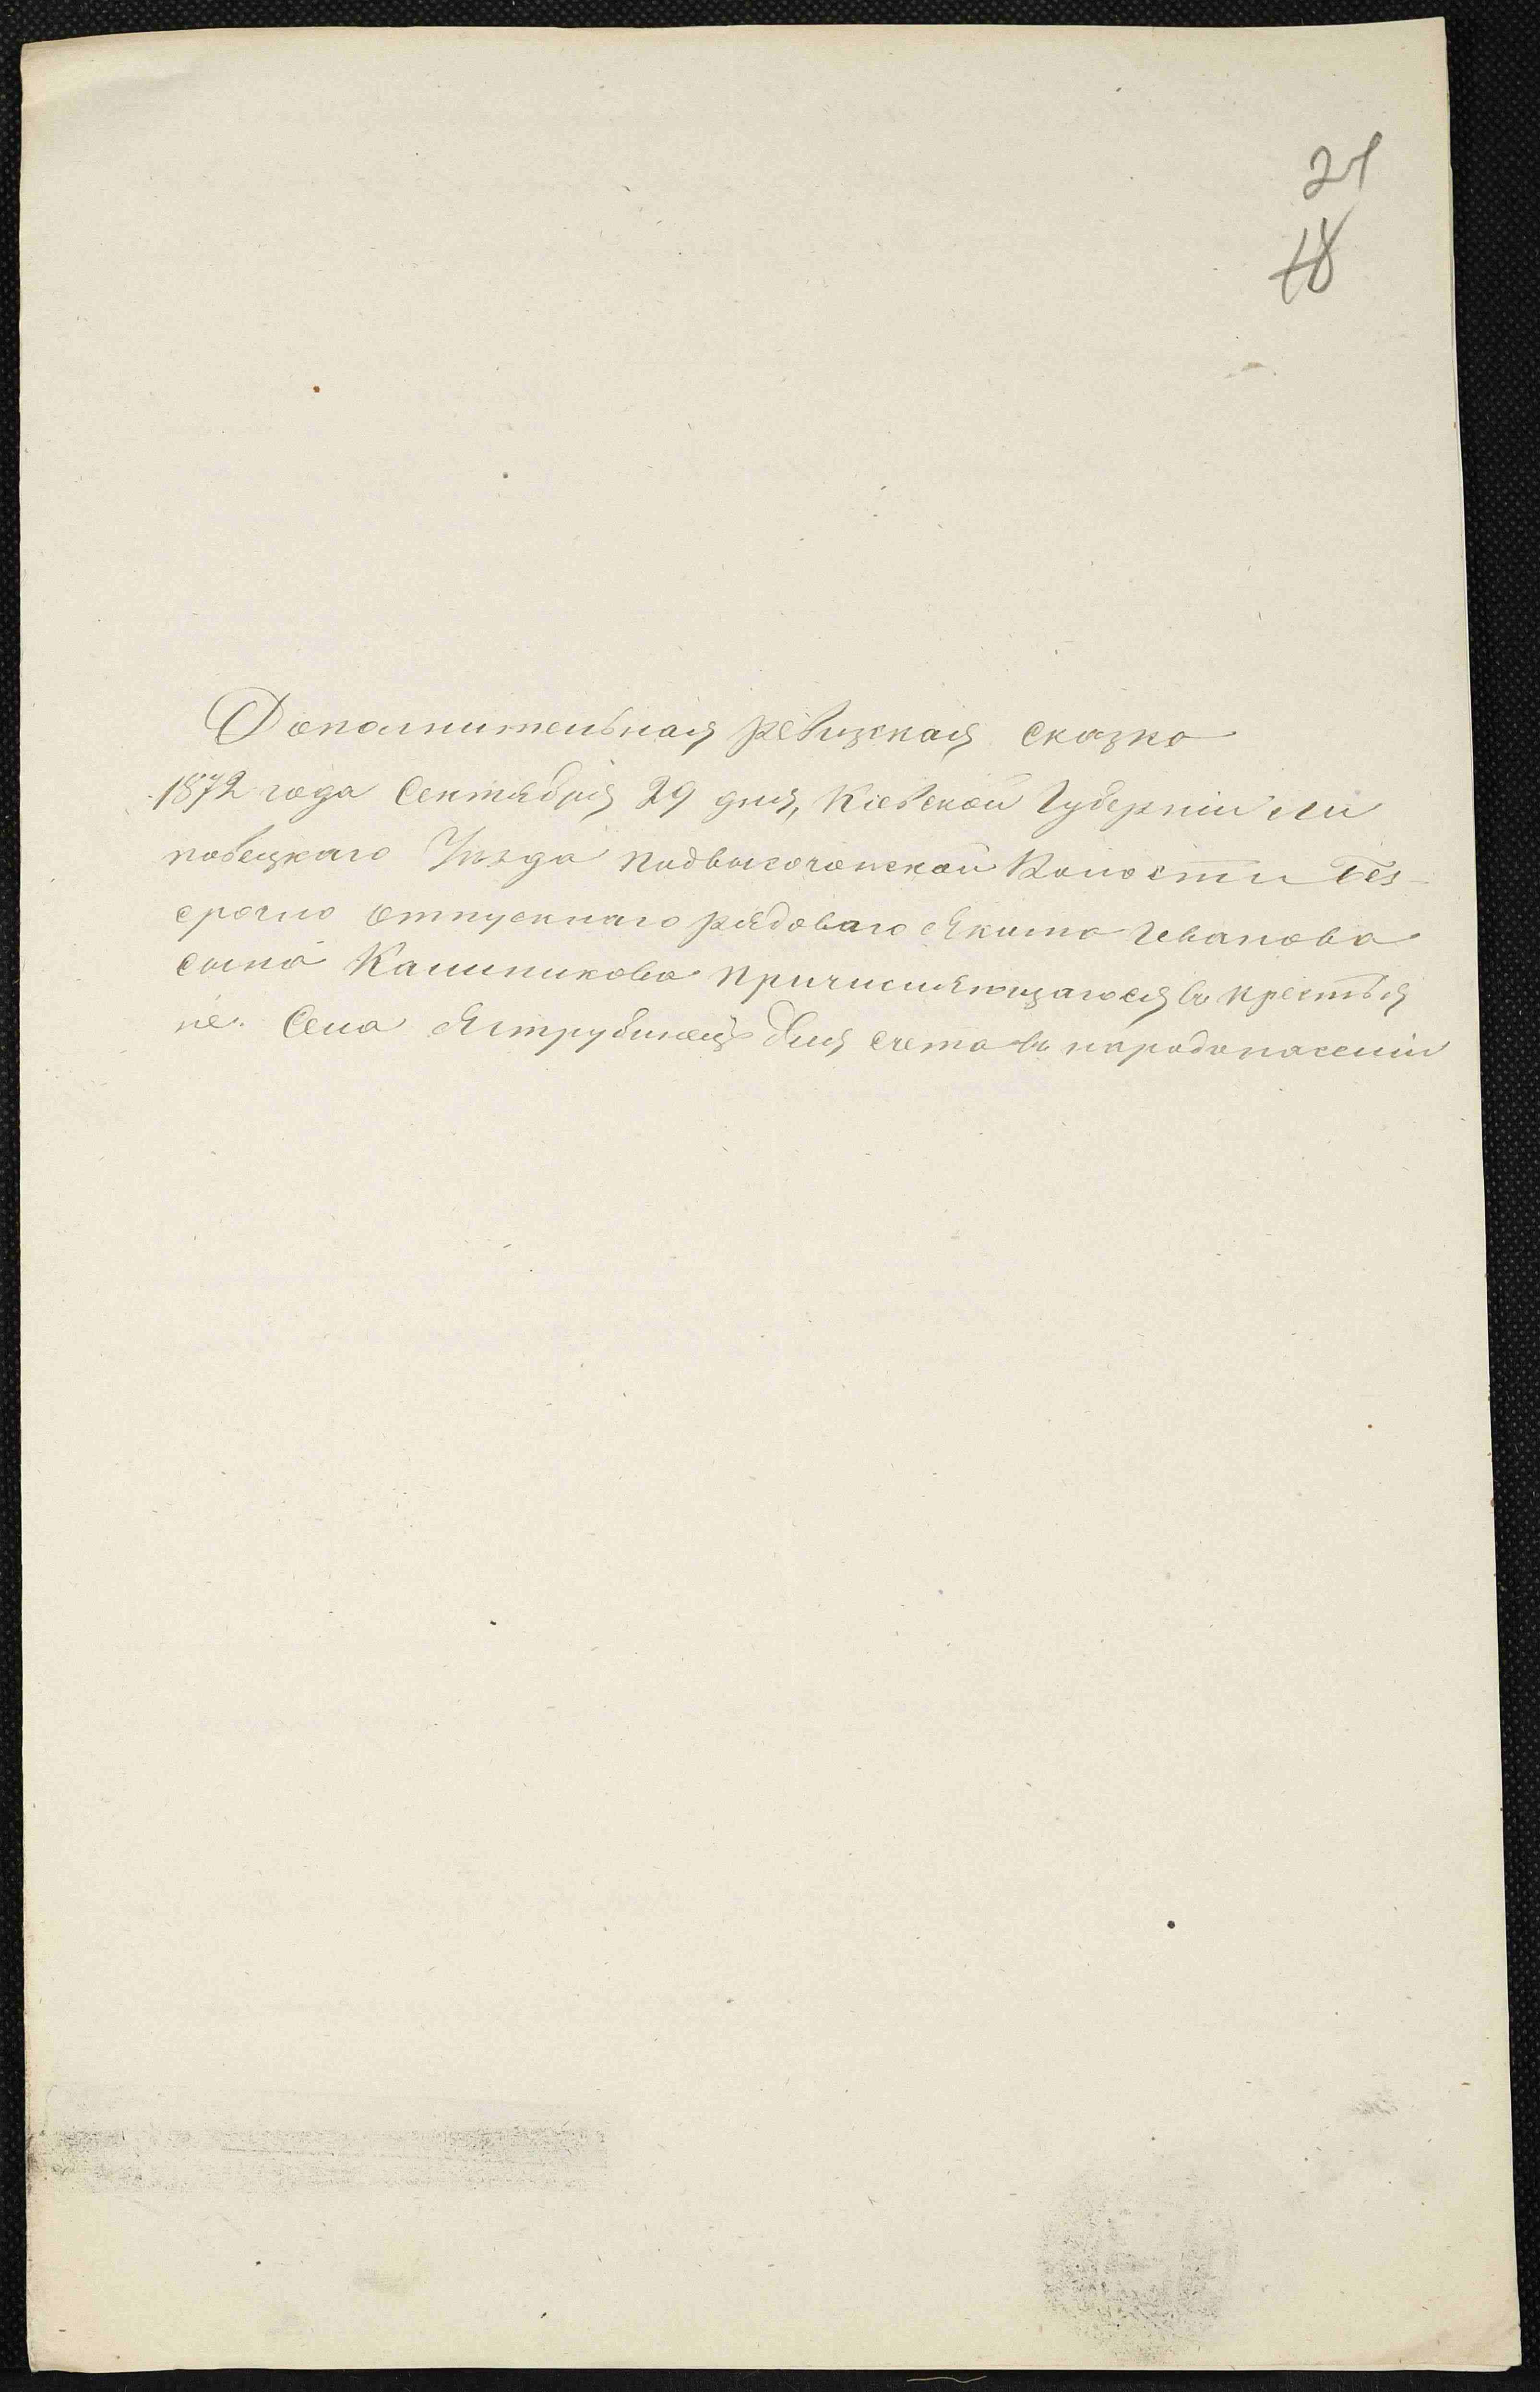 21
18
Дополнительная ревизская сказка
1872 года Сентября 29 дня, Кіевской Губерніи Ли
повецкаго Уѣзда Подвысочанской Волости Без-
срочно отпускнаго рядоваго Якима Иванова
сына Калиникова причисляющагося въ крестья
не. Села Яструбинецъ для счета въ народонаселеніи